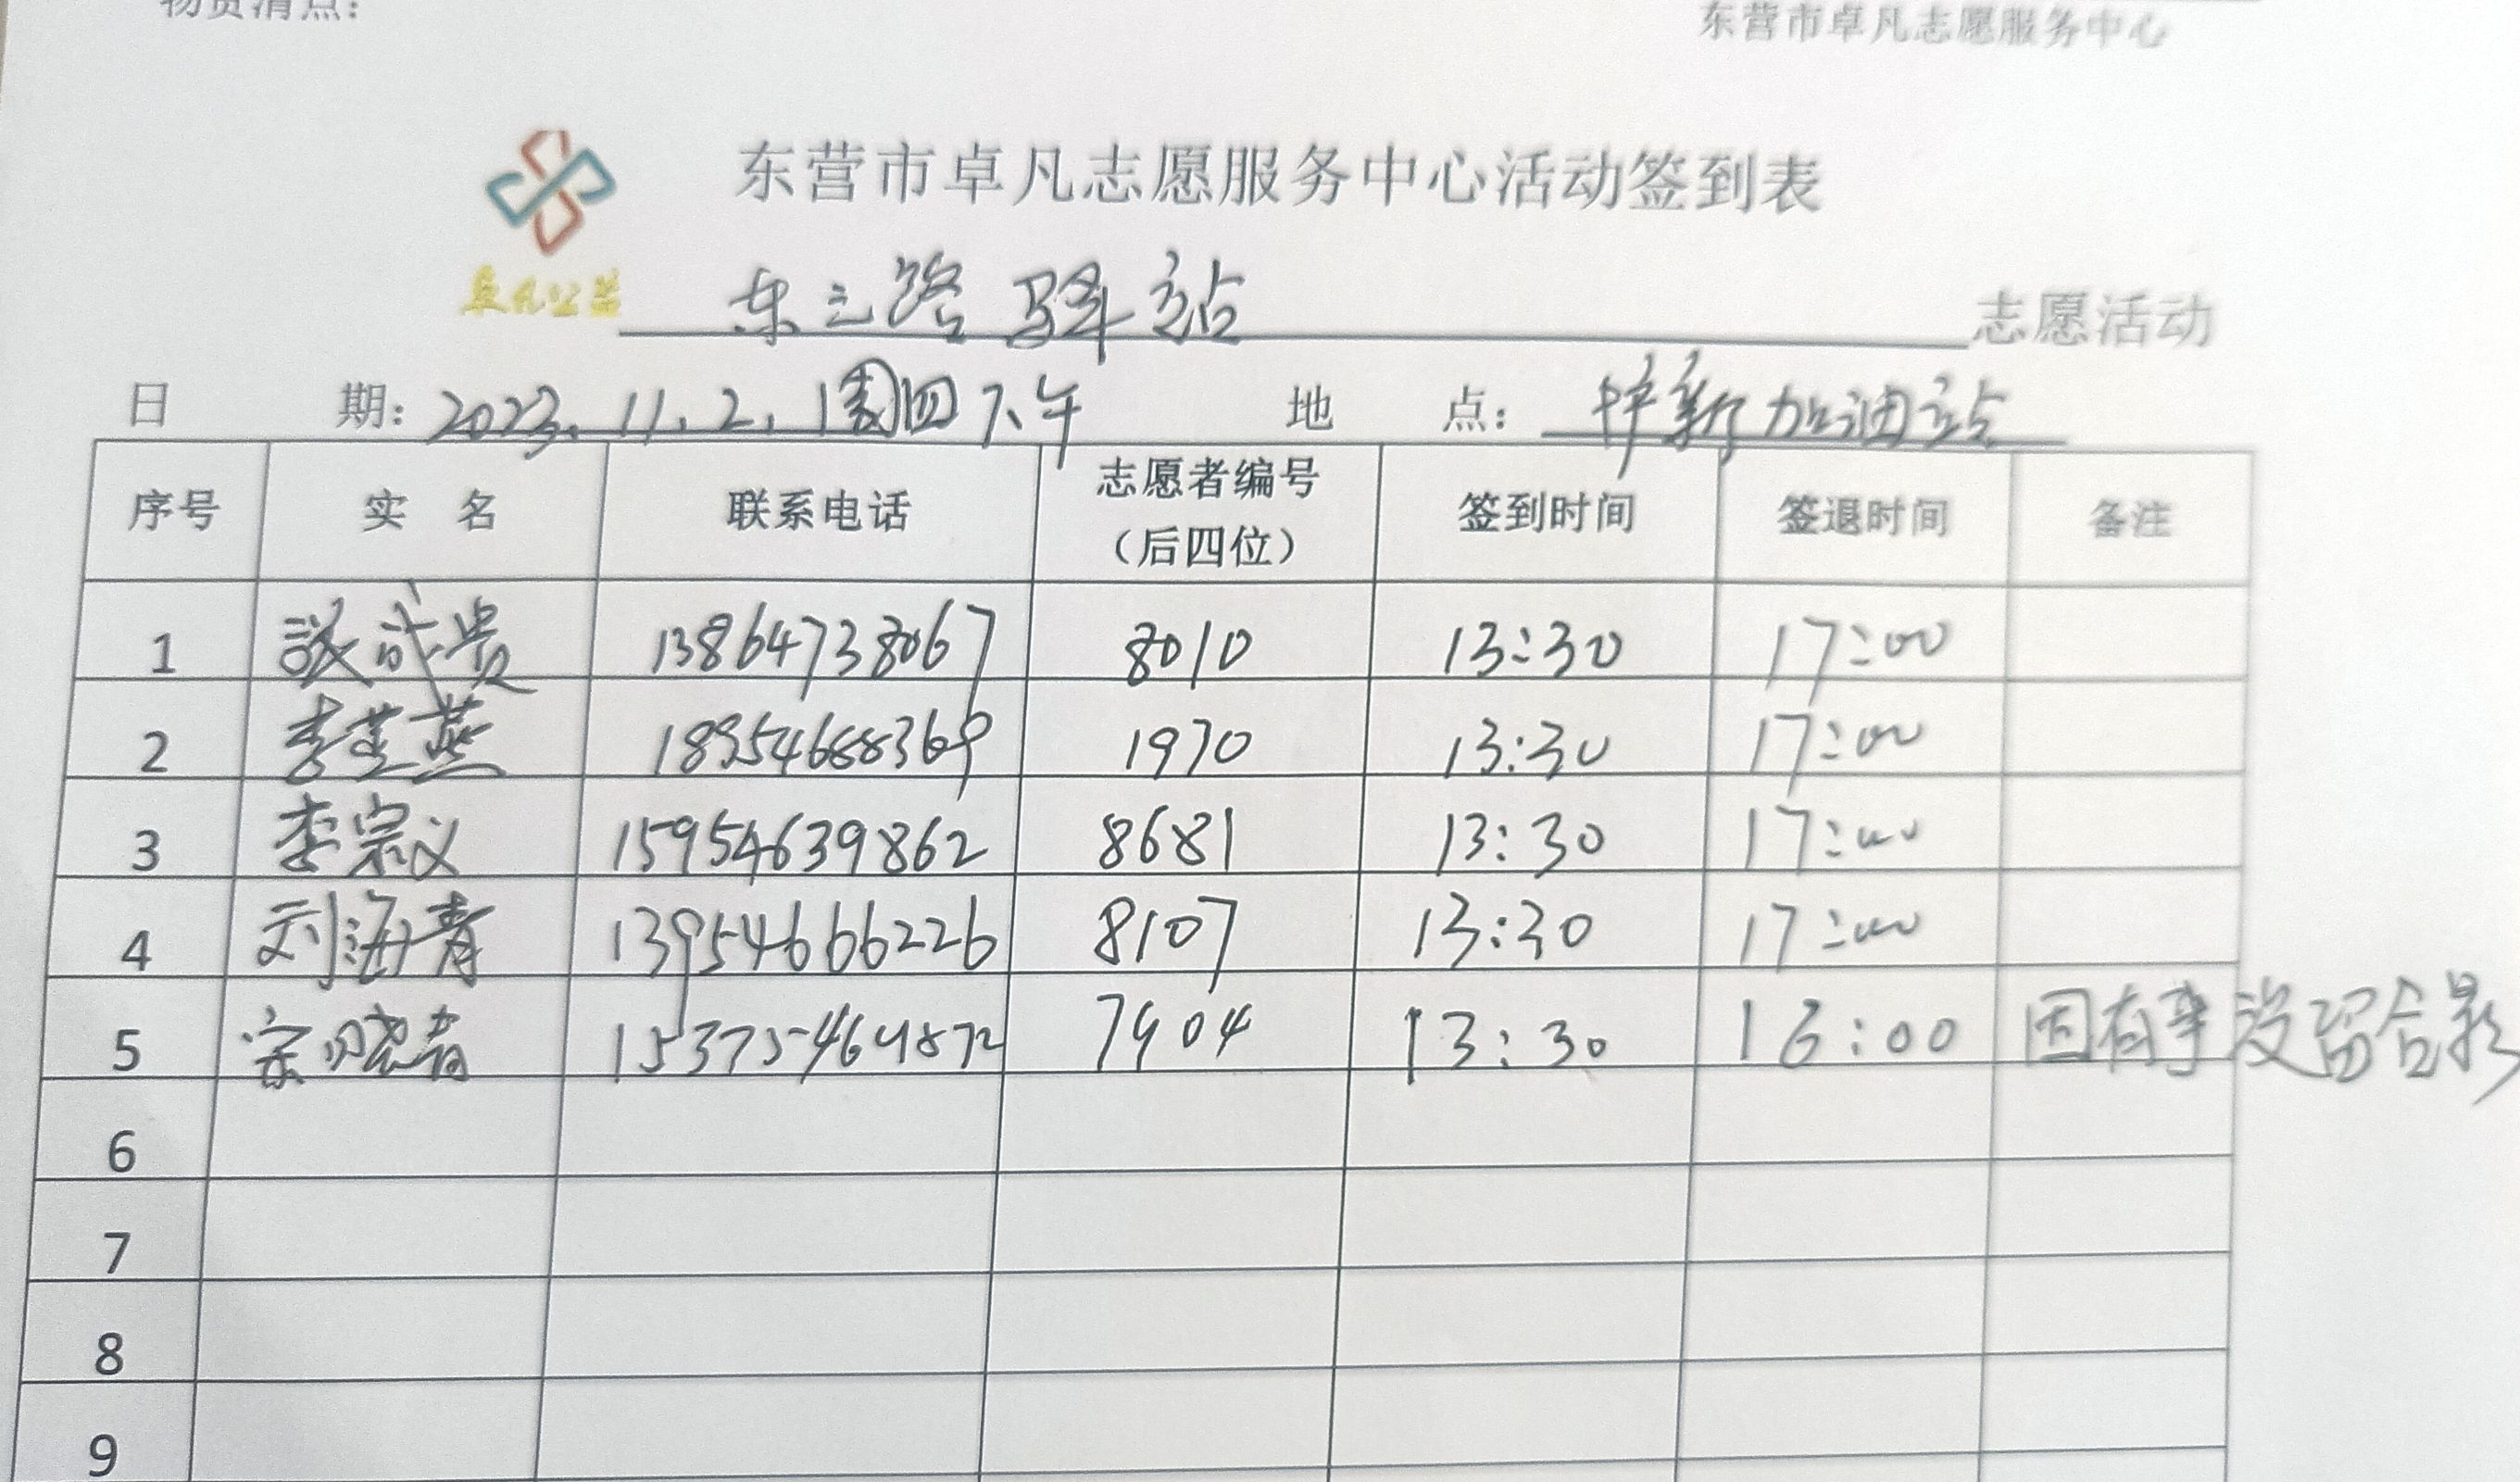 物资清点：
东营市卓凡志愿服务中心
东营市卓凡志愿服务中心活动签到表
卓凡公益
东三路驿站 志愿活动
日期：2023.11.2.周四下午 地点：新加油站
序号 实名 联系电话 志愿者编号（后四位） 签到时间 签退时间 备注
1 13864738067 8010 13:30 17:00
2 李芝燕 18954688369 1970 13:30 17:00
3 李宗义 15954639862 8681 13:30 17:00
4 刘海青 13954666226 8107 13:30 17:00
5 宗晓青 15375464872 7904 13:30 16:00 因有事没留合影
6
7
8
9